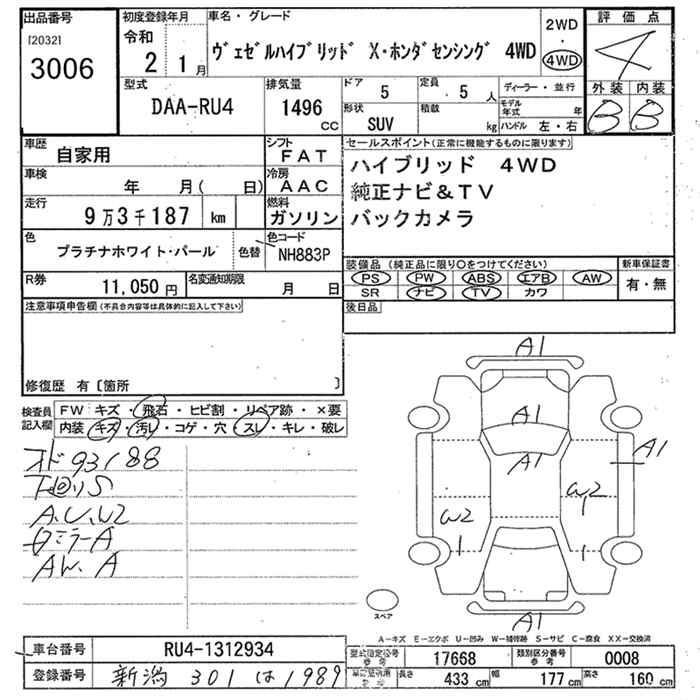 出品番号
[2032]
3006
初度登録年月
令和
2 1月
車名・グレード
ヴェゼルハイブリッド X・ホンダセンシング 4WD
2WD
・
4WD
評価点
4
型式
DAA-RU4
排気量
1496
CC
ドア
5
定員
5 人
形状
SUV
積載
kg
ディーラー・並行
モデル年式
年
ハンドル 左・右
外装 内装
B B
車歴
自家用
シフト
FAT
車検
年 月( 日)
冷房
AAC
走行
9万3千187 km
燃料
ガソリン
色
プラチナホワイト・パール
色替
色コード
NH883P
R券
11,050円
名変通知期限
月 日
セールスポイント(正常に機能するものに限ります)
ハイブリッド 4WD
純正ナビ&TV
バックカメラ
装備品(純正品に限り○をつけてください)
PS PW ABS エアB AW
SR ナビ TV カワ
新車保証書
有・無
後日品
注意事項申告欄(不具合内容等は具体的に記入して下さい)
修復歴 有〔箇所 〕
検査員
記入欄
FW キズ・飛石・ヒビ割・リペア跡・×要
内装 キズ・汚レ・コゲ・穴・スレ・キレ・破レ
オド93188
下回りS
A、U、W2
ミラーA
AW、A
A1
A1
A1
A1
W2
W2
A1
スペア
A-キズ E-エクボ U-凹み W-補修跡 S-サビ C-腐食 XX-交換済
車台番号
RU4-1312934
登録番号
新潟 301 は 1989
型式指定番号
参考
17668
類別区分番号
参考
0008
長さ
433 cm
幅
177 cm
高さ
160 cm